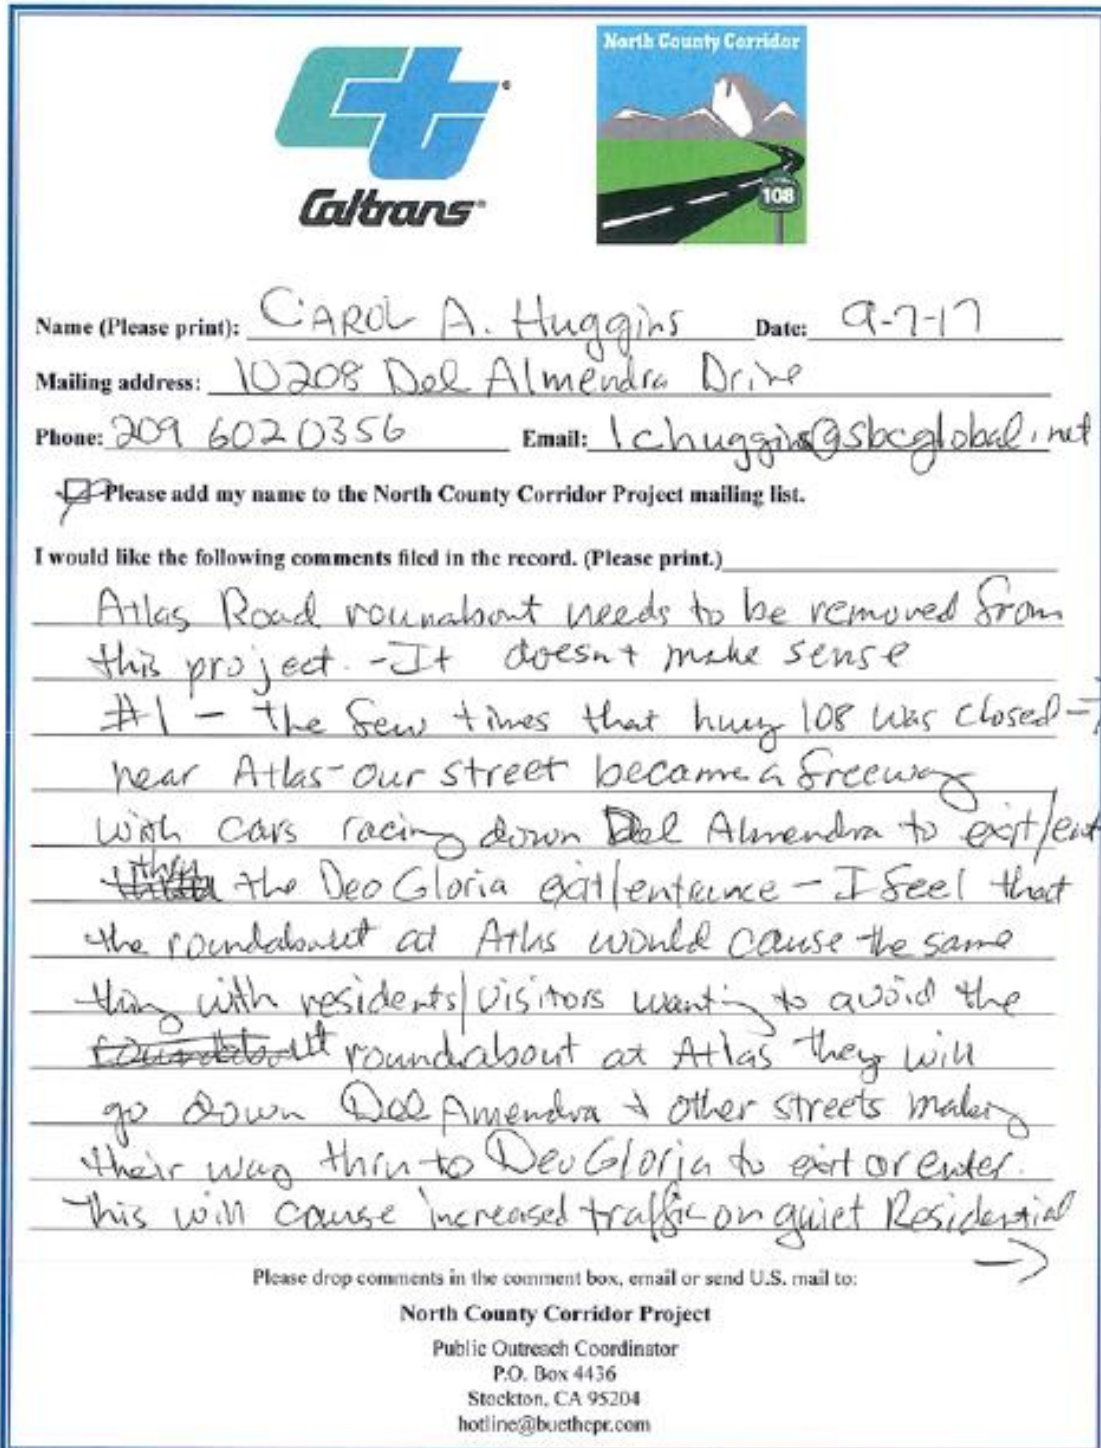 Caltrans
North County Corridor
108
Name (Please print): CAROL A. Huggins Date: 9-7-17
Mailing address: 10208 Del Almendra Drive
Phone: 209 602 0356 Email: lchuggins@sbcglobal.net
Please add my name to the North County Corridor Project mailing list.
I would like the following comments filed in the record. (Please print.)
Atlas Road rounabout needs to be removed from
this project. - It doesnt make sense
#1 - the few times that hwy 108 was closed -
near Atlas - our street became a freeway
with cars racing down Del Almendra to exit/ent
thru the Deo Gloria exit/entrance - I feel that
the roundabout at Atlas would cause the same
thing with residents/visitors wanting to avoid the
roundabout at Atlas they will
go down Del Amendra + other streets making
their way thru to Deo Gloria to exit or enter.
this will cause increased traffic on quiet Residential
Please drop comments in the comment box, email or send U.S. mail to:
North County Corridor Project
Public Outreach Coordinator
P.O. Box 4436
Stockton, CA 95204
hotline@buethepr.com